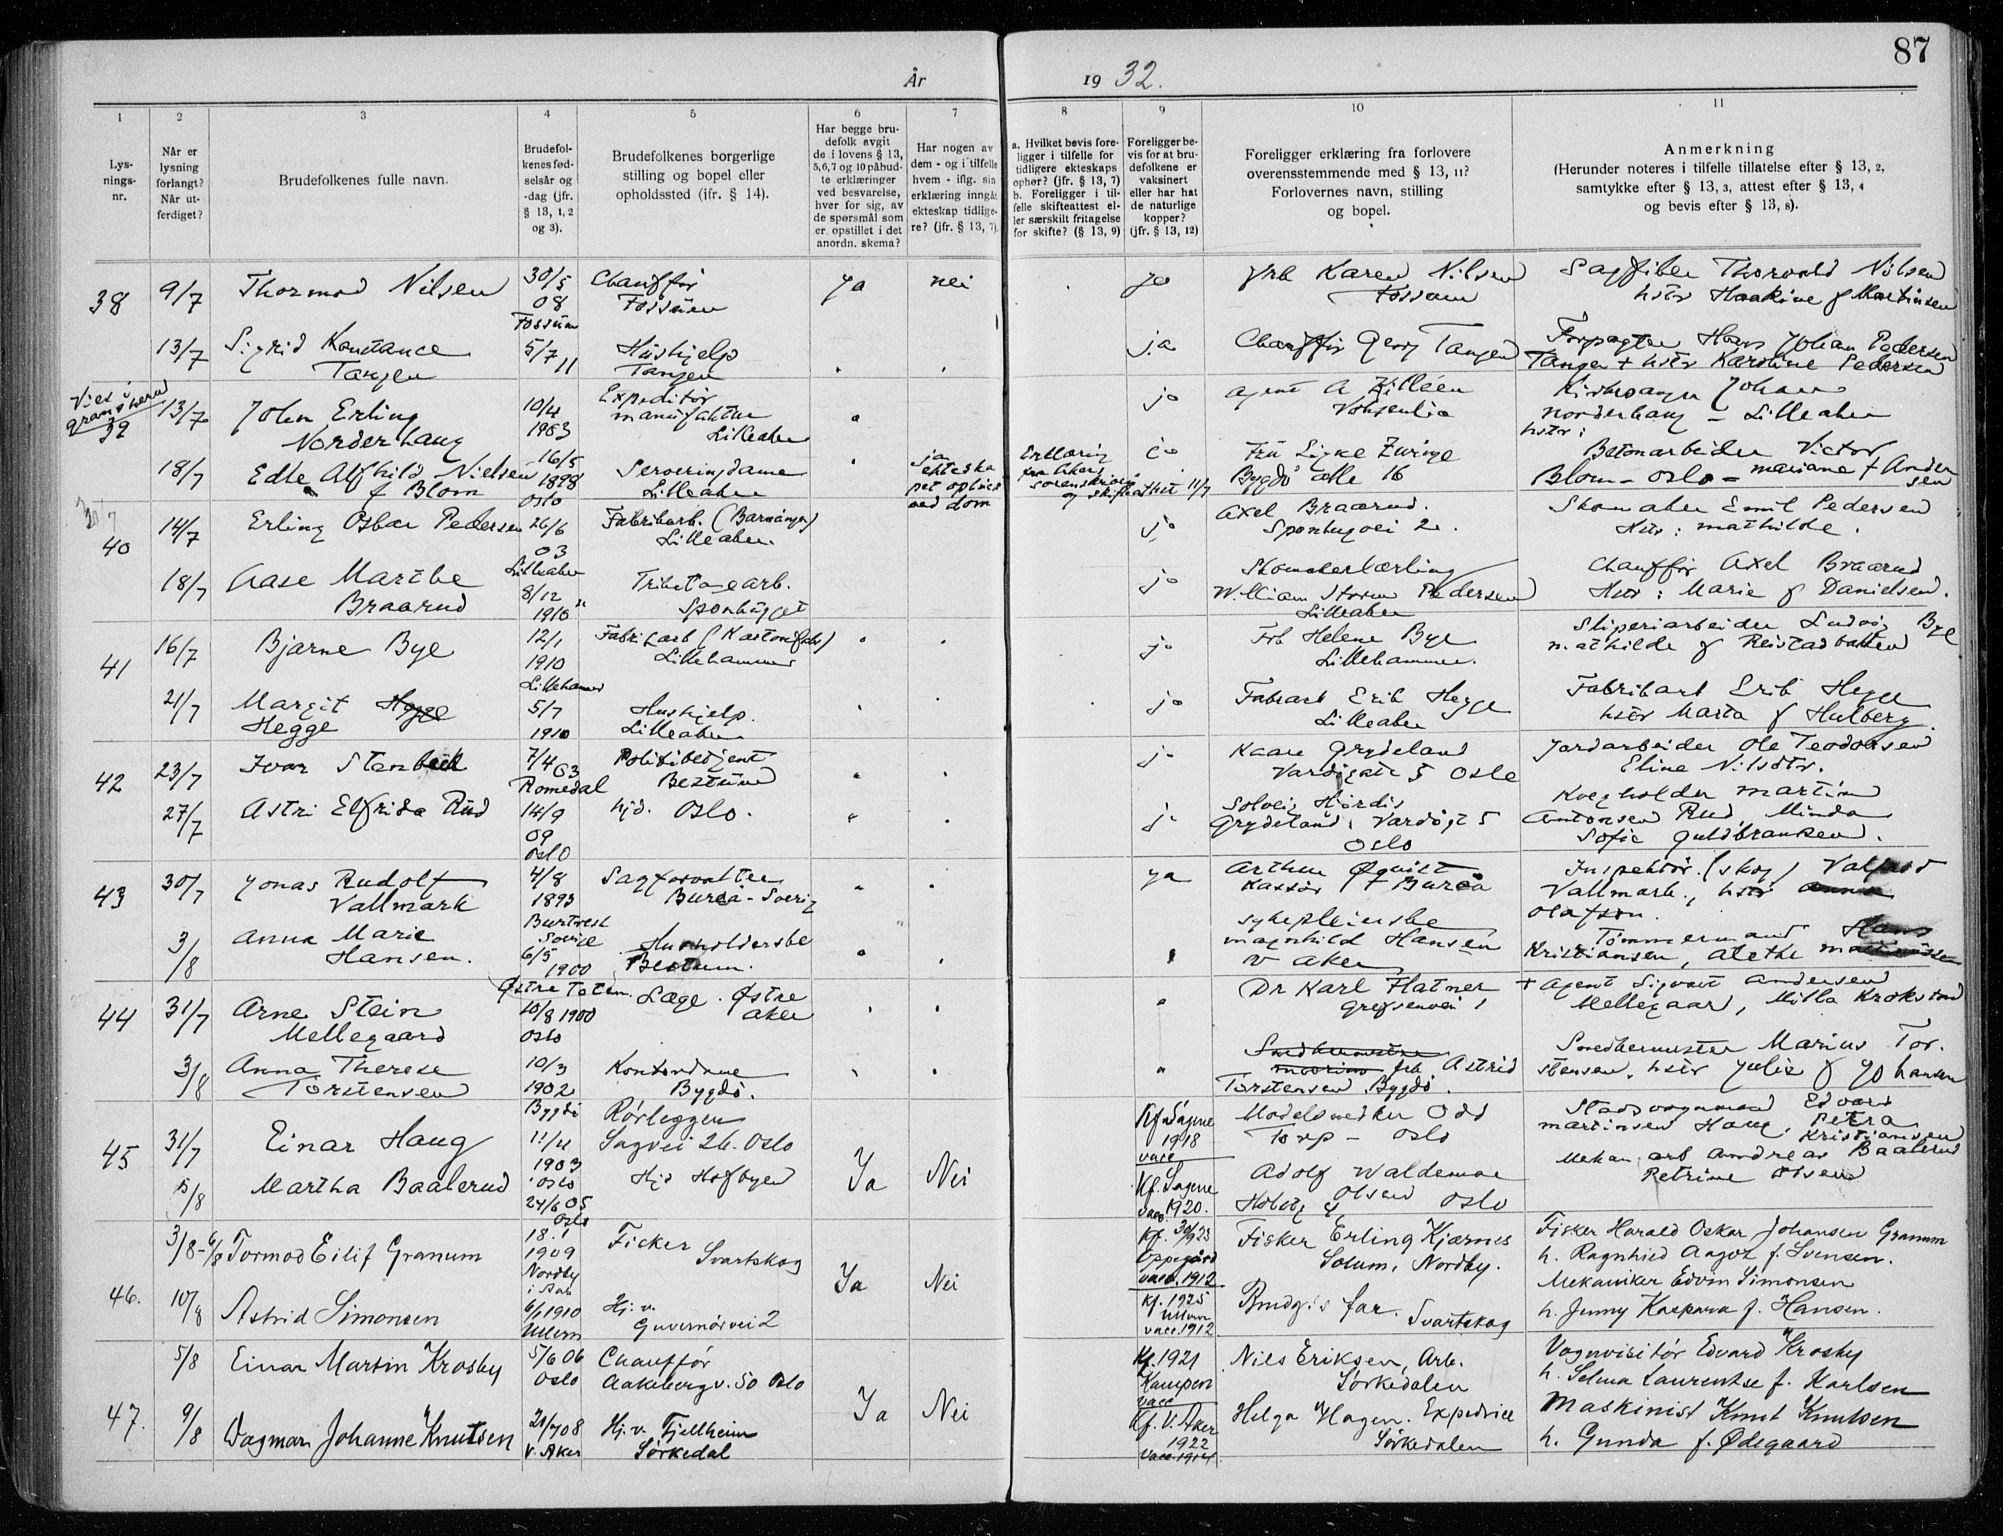 87
År 1932.
1 2 3 4 5 6 7 8 9 10 11
Lys-
nings-
nr.
Når er
lysning
forlangt?
Når ut-
ferdiget?
Brudefolkenes fulle navn.
Brudefol-
kenes fød-
selsår og
-dag (jfr.
§ 13, 1, 2
og 3).
Brudefolkenes borgerlige
stilling og bopel eller
opholdssted (jfr. § 14).
Har begge bru-
defolk avgit
de i lovens § 13,
5,6,7 og 10 påbud-
te erklæringer
ved besvarelse,
hver for sig, av
de spørsmål som
er opstillet i det
anordn. skema?
Har nogen av
dem - og i tilfelle
hvem - iflg. sin
erklæring inngåt
ekteskap tidlige-
re? (jfr. § 13, 7).
a. Hvilket bevis fore-
ligger i tilfelle for
tidligere ekteskaps
ophør? (jfr. § 13, 7)
b. Foreligger i til-
felle skifteattest el-
ler særskilt fritagelse
for skifte? (§ 13, 9)
Foreligger be-
vis for at bru-
defolkene er
vaksinert
eller har hat
de naturlige
kopper?
(jfr. § 13, 12)
Foreligger erklæring fra forlovere
overensstemmende med § 13, 11?
Forlovernes navn, stilling
og bopel.
Anmerkning
(Herunder noteres i tilfelle tillatelse efter § 13, 2,
samtykke efter § 13, 3, attest efter § 13, 4
og bevis efter § 13, 8).
38
9/7
Thormod Nilsen
30/5
08
Fossum
Chauffør
Fossum
Ja
nei
ja
Frk Karen Nilsen
Fossum
Thorvald Nilsen
hstr Haakine f Martinsen
13/7
Sigrid Konstance
Tangen
5/7 11
Hushjelp
Tangen
ja
Chauffør Georg Tangen
Forpagter Hans Johan Pedersen
Tangen + hstr Karoline Pedersen
Viet i
39
13/7
John Erling
Norderhaug
10/4
1903
Expeditør
manufaktur
Lilleaker
ja
agent A
Johan
Norderhaug - Lilleaker
hstr:
18/7
Edle Alfhild Nielsen
f Blom
16/5
1898
Oslo
Serveringsdame
Lilleaker
ja
ekteska
pet opløst
ved dom
Erklæring
fra Aker
sorenskriveri
og skifteattest 11/7
Bygdø alle 16
Betonarbeider Victor
Blom - Oslo - mariane f Ander
sen
40
14/7
Erling Oskar Pedersen
26/6
03
Lilleaker
Fabrikarb. (Barnängen)
Lilleaker.
ja
Axel Braarud.
Skomaker Emil Pedersen
Hstr: mathilde.
18/7
Aase Marthe
Braarud
8/12
1910
Trikotagearb.
ja
Skomakerlærling
William Storm Pedersen
Lilleaker
Chauffør Axel Braarud
Hstr: Marie f Danielsen.
41
16/7
Bjarne Bye
12/1
1910
Lillehammer
Fabrikarb (Kartonfabr)
Lillehammer
ja
Frk Helene Bye
Lillehammer.
Sliperiarbeider Ludvig Bye
mathilde f Reistadbakken
21/7
Margit Hegge
Hegge
5/7
1910
Hushjelp.
Lilleaker
ja
Fabrarb Erik Hegge
Lilleaker
Fabrikarb Erik Hegge
hstr Marta f Hulberg.
42
23/7
Ivar Stenbæk
7/4 03
Romedal
Politibetjent
Bestum
Kaare Grydeland
Vardøgate 5 Oslo
Jordarbeider Ole Teodorsen
Eline Nilsdtr.
27/7
Astri Elfrida Rud
14/9
09
Oslo
hjd. Oslo.
Solveig Hjørdis
Grydeland, Vardøgt 5
Oslo
Kvegholder martin
Antonsen Rud, Minda
Sofie Guldbransen.
43
30/7
Jonas Rudolf
Vallmark
4/8
1893
Sagforvalter
Bureå - Sverig
ja
Arthur Øqvist
Kassør f Bureå
Inspektør (skog) Valfrid
Vallmark, hstr
Olafson.
3/8
Anna Marie
Hansen.
6/5
1900
Østre Toten
Husholderske
Bestum.
sykepleierske
magnhild Hansen
V Aker
Tømmermand Hans
Kristiansen, Alethe
44
31/7
Arne Stein
Mellegaard
10/8 1900
Oslo
Læge. Østre
Aker
Dr Karl Hatner
Grefsenvei 1
+ Agent Sigvart Andersen
Mellegaar, Milla Krokstad
3/8
Anna Therese
Torstensen
10/3
1902
Bygdø
Kontordame
Bygdø.
frk. Astrid
Torstensen Bygdø.
Smedhermester Marius Tor-
stensen, hstr Julie f Johansen
45
31/7
Einar Haug
11/11
1903
Oslo
Rørlegger
Sagvei 26. Oslo
Kf. Sagene
1918
vacc
Modelsnekker Odd
Torp - Oslo
Edvard
martinsen Haug, Petra
Kristiansen
5/8
Martha Baalerud
24/6 05
Oslo
Hjd Hofbyen
Ja
Nei
Kf. Sagene
vacc. 1920.
Adolf Waldemar
Olsen Oslo
Mekan. arb Andreas Baalerud
Petrine Olsen
46.
3/8-6/8
Tormod Eilif Granum
18.1
1909
Nordby
i Aas
Fisker
Svartskog
Ja
Nei
Kf. 30/9 23
Oppegård
vacc. 1912
Fisker Erling Kjærnes
Solum, Nordby.
Fisker Harald Oskar Johansen Granum
h. Ragnhild Aagot f. Svensen.
10/8
Astrid Simonsen
6/1 1910
Ullern
Hj. v.
Guvernørvei 2
Kf. 1925
Ullern
vacc. 1912
Brudgs far. Svartskog
Mekaniker Edvin Simonsen
h. Jenny Kaspara f. Hansen.
47.
5/8
Einar Martin Krosby
5/6 06
Oslo
Chauffør
Aakebergv. 50 Oslo
Ja
Nei
Kf. 1921
Kampen
vacc
Nils Eriksen, Arb.
Sørkedalen
Vognvisitør Edvard Krosby
h. Selma Laurentse f. Karlsen
9/8
Dagmar Johanne Knutsen
21/7 08
V. Aker
Hj. v. Fjellheim
Sørkedal
Kf. V. Aker
1922
vacc. 1914
Helga Hagen. Expedrice
Sørkedalen
Maskinist Knut Knutsen
h. Gunda f. Ødegaard